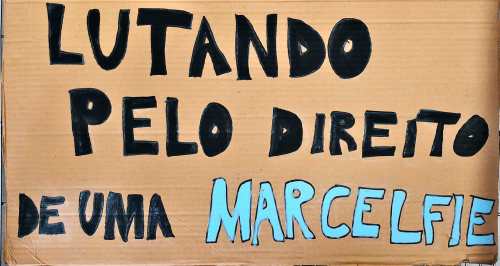 LUTANDO
PELO DIREITO
DE UMA MARCELFIE